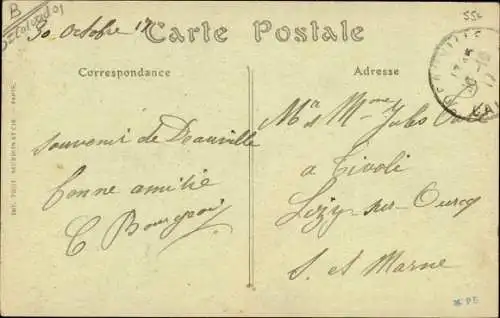 B
30 Octobre 17
55c
Carte Postale
Correspondance
Adresse
Souvenir de Deauville
bonne amitié
C Bourgeois
Mr & Mme Jules
a Tivoli
Lizy-sur-Ourcq
S. et Marne
DEAUVILLE
PE